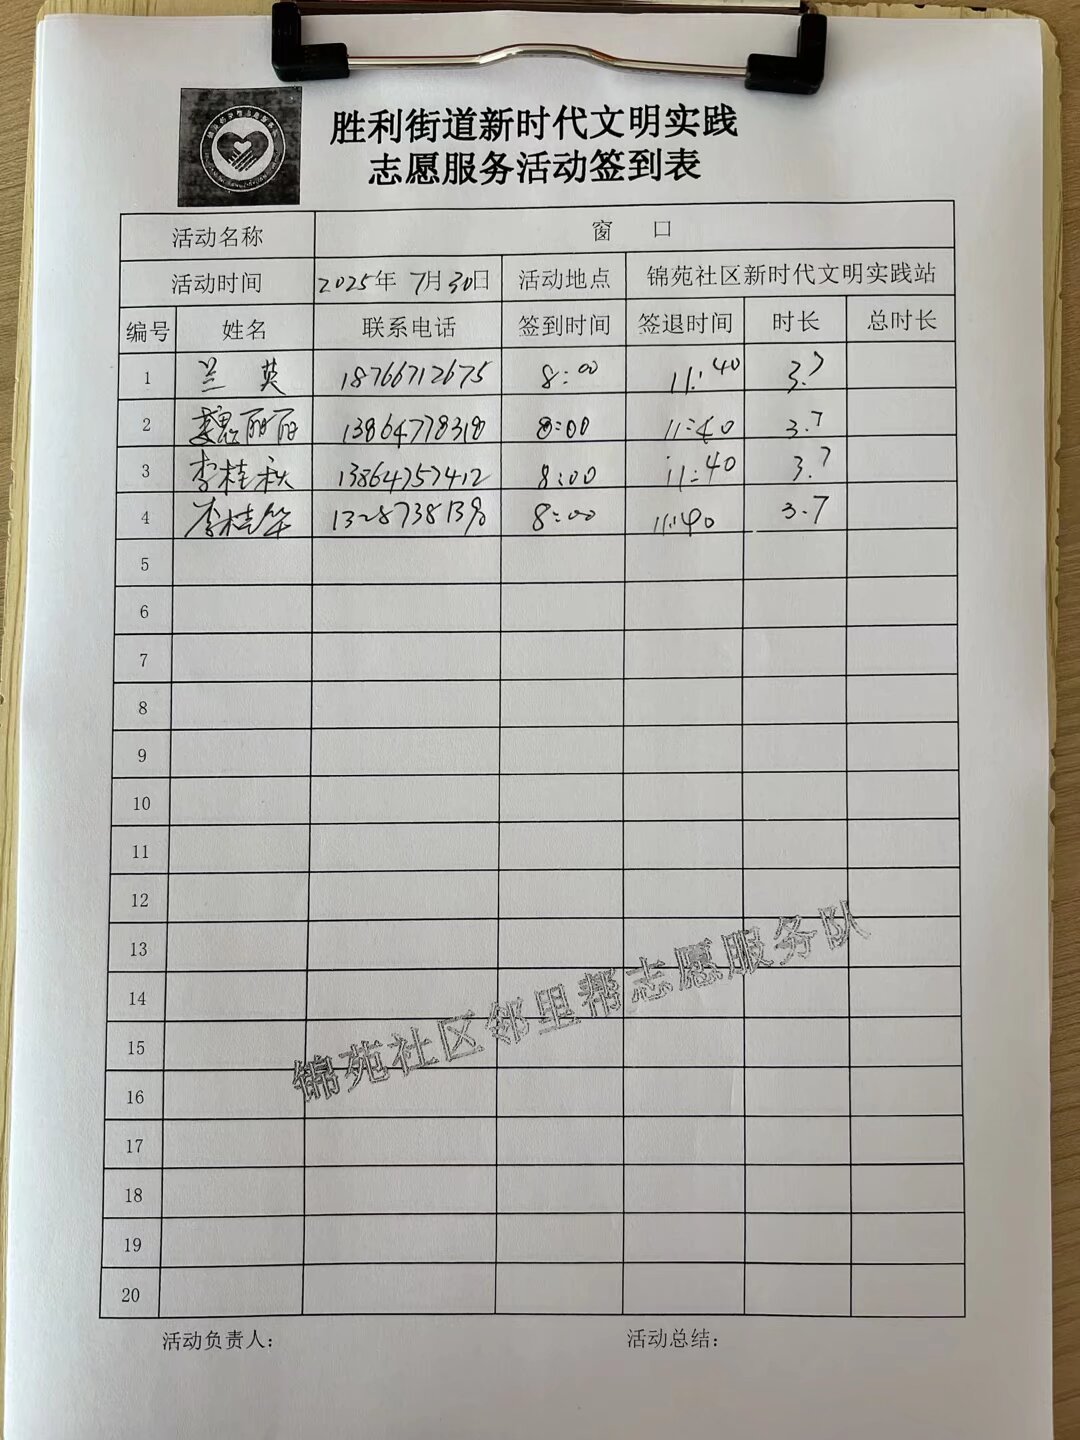 胜利街道新时代文明实践
志愿服务活动签到表
活动名称 窗 口
活动时间 2025年 7月30日 活动地点 锦苑社区新时代文明实践站
编号 姓名 联系电话 签到时间 签退时间 时长 总时长
1 兰英 18766712675 8:00 11:40 3.7
2 魏丽丽 13864778318 8:00 11:40 3.7
3 李桂秋 13864757412 8:00 11:40 3.7
4 李桂华 8:00 11:40 3.7
5
6
7
8
9
10
11
12
13
14
15
16
17
18
19
20
锦苑社区邻里帮志愿服务队
活动负责人: 活动总结: